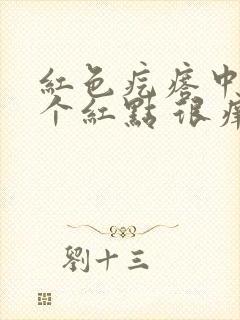 紅色疙瘩中
个紅點 很癢
劉十三